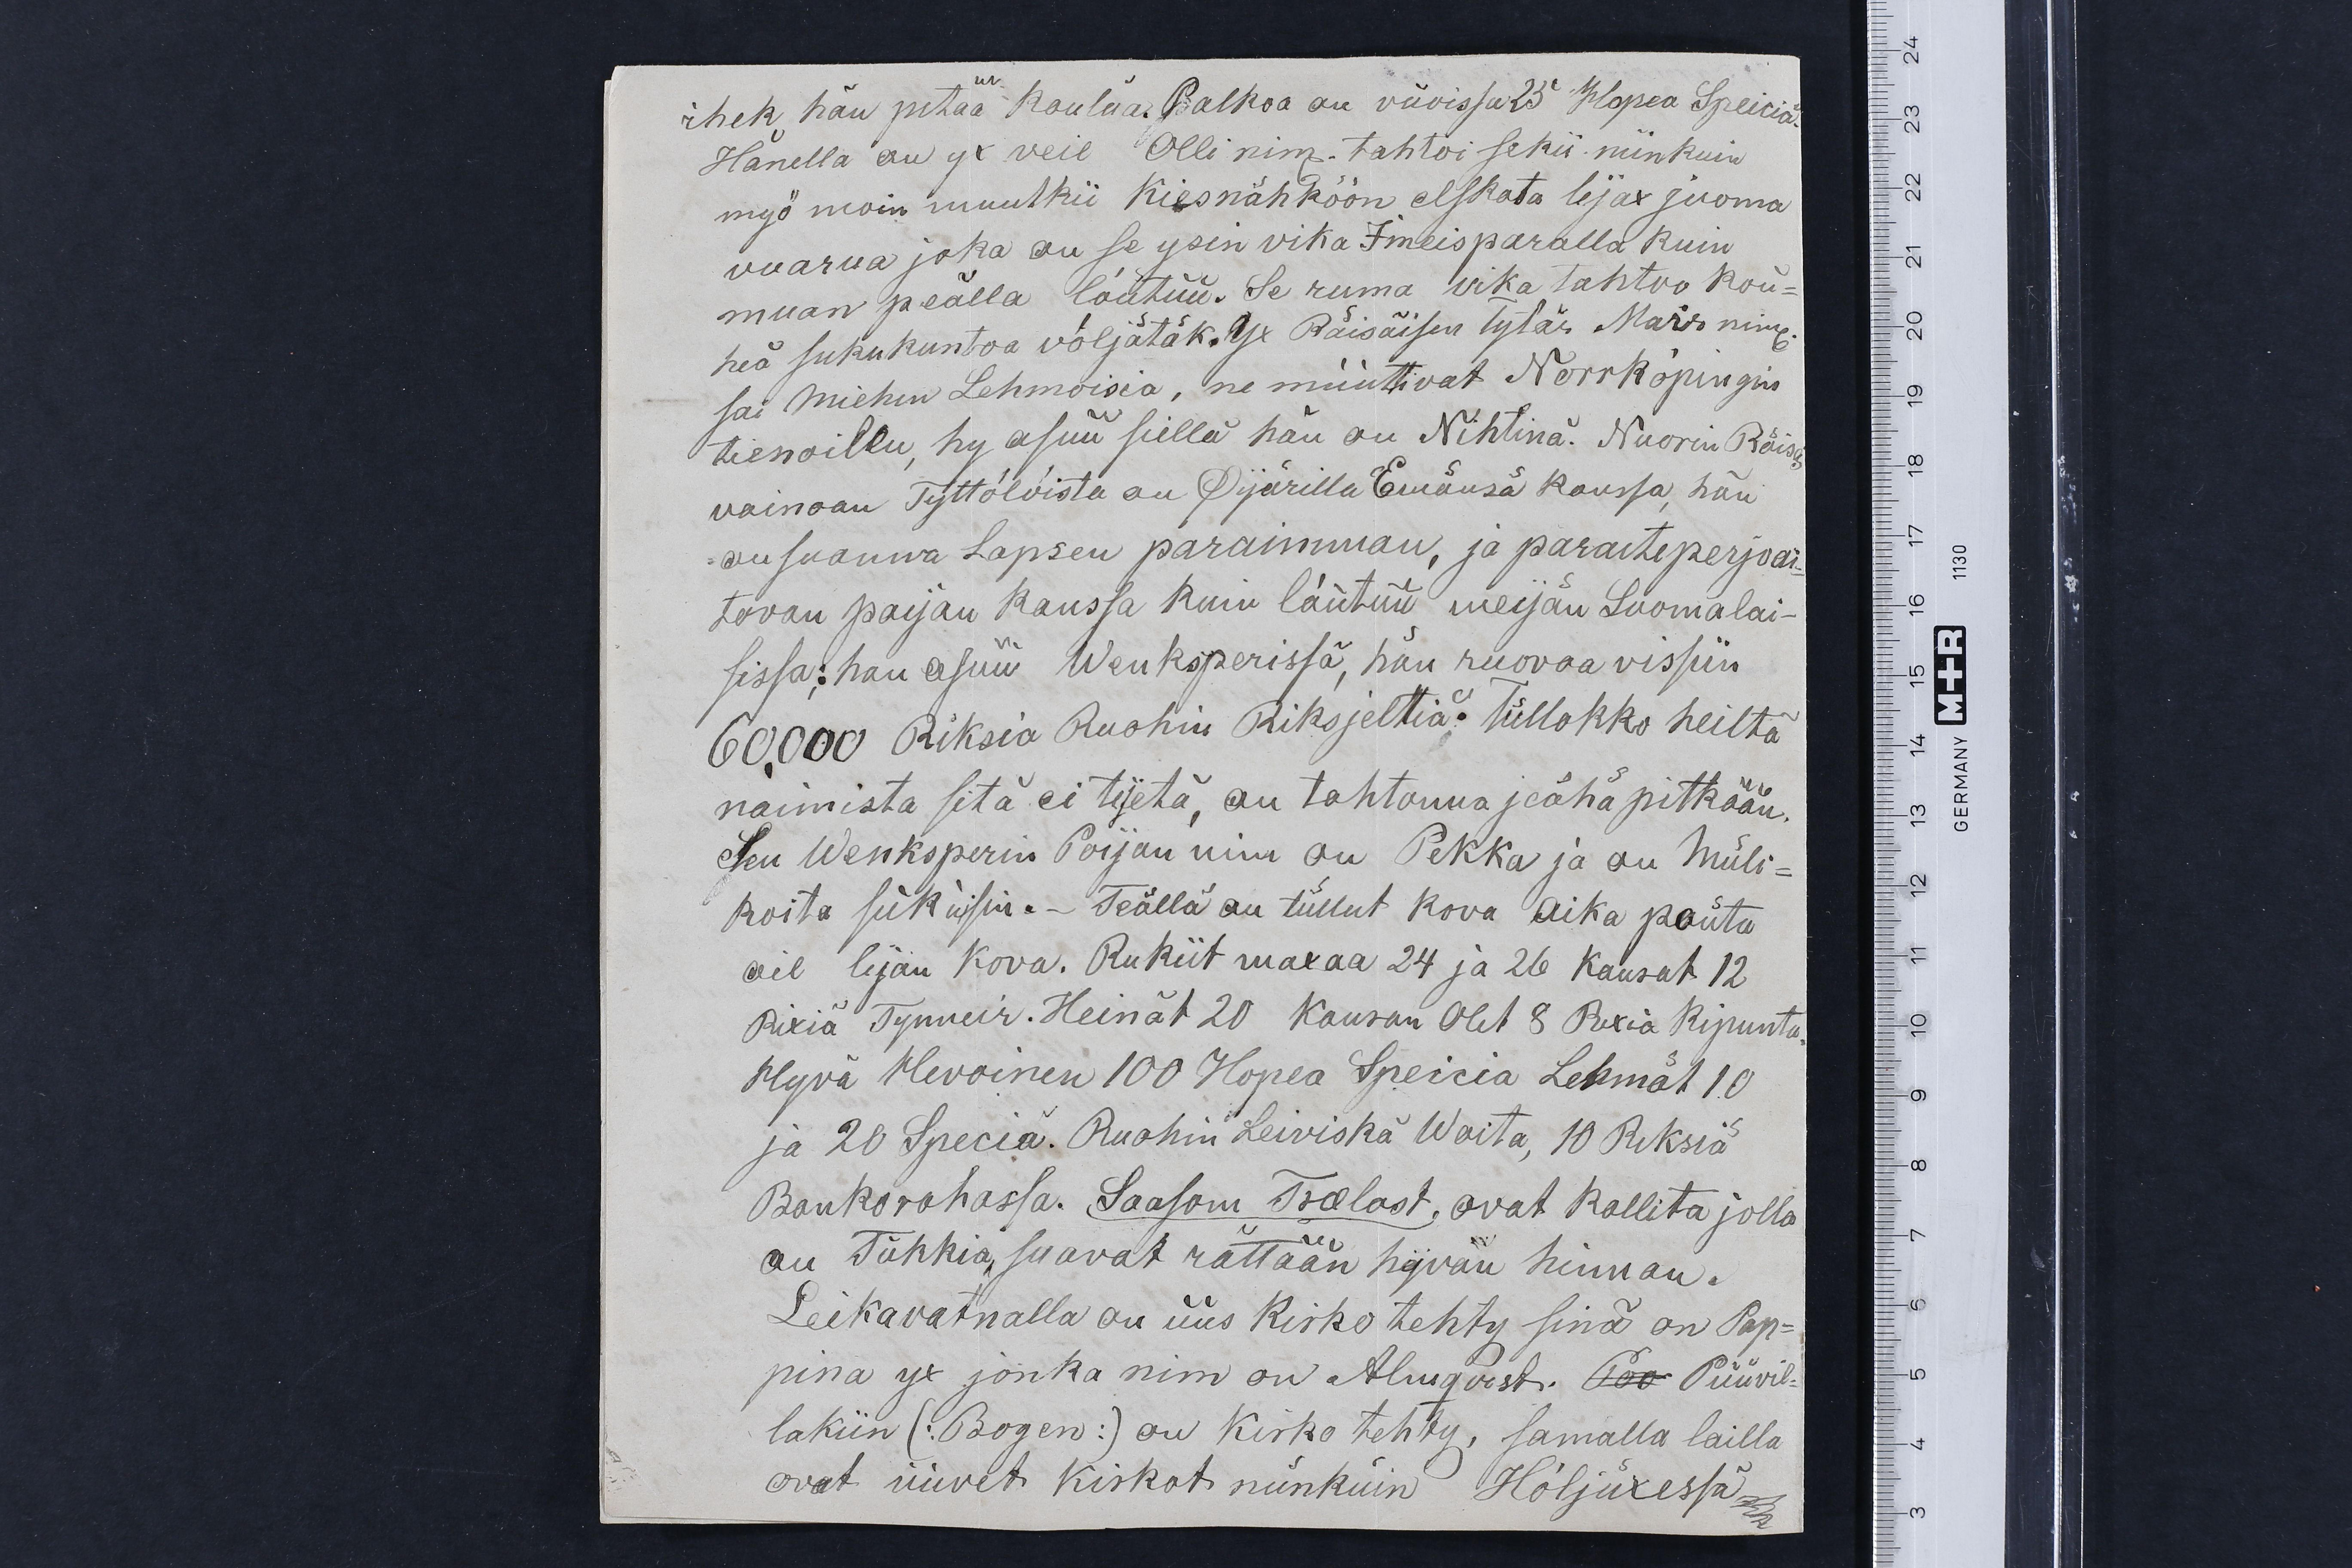 ihek hän pitää koulua. Palkoa on vüvissa 25 Hopea Speiciä.
Hänella on yx veil Olli nim. tahtoi sekii niinkuin
myö moin muutkii Kiesnähköön elskata lijax juoma
vuarua joka on se yxin vika Imeisparalla kuin
muan peälla löütüü. Se ruma vika tahtoo kou=
heä sukukuntoa völjätäk. Yx Räisäisen Tytär Marr nim.
sai Miehen Lehmoisia, ne müütivat Norrköpingin
tienoillu, hy asuu siellä hän on Nihtinä. Nuorin Räisä
vainoan Tyttölöistä on Öijärilla Emänsä kanssa, hän
on suanna Lapsen paraimman, ja paraiteperjoai=
tovan paijan kanssa kuin löütüü meijän Suomalai-
sissa; hän asuu Wenksperissä, hän ruovaa vissiin
60,000 Riksia Ruohin Riksjeltiä: Tüllokko heiltä
naimista sitä ei tijetä, on tahtonna jeähä pitkään.
Sen Wenksperin Poijan nim on Pekka ja on Müli=
koita suküisin. - Teällä on tüllut kova Aika pouta
oil lijan kova. Rukiit maxaa 24 ja 26 Kausat 12
Rixiä Tynneir. Heinät 20 Kausan Olet 8 Rixia Kipunta.
Hyvä Hevoinen 100 Hopea Speicia Lehmät 10
ja 20 Speciä. Ruohin Leiviskä Woita, 10 Riksiä
Bankorahassa. Saasom Trælast, ovat kallita jolla
on Tükkia, suavat rättään hyvän hinnan.
Leikavatnalla on üüs Kirko tehty sinä on Pap=
pina yx jonka nim on Almqvist. Poo Püüvil=
lakiin (: Bogen :) on Kirko tehty, samalla lailla
ovat üüvet Kirkot niinküin Höljüxessä